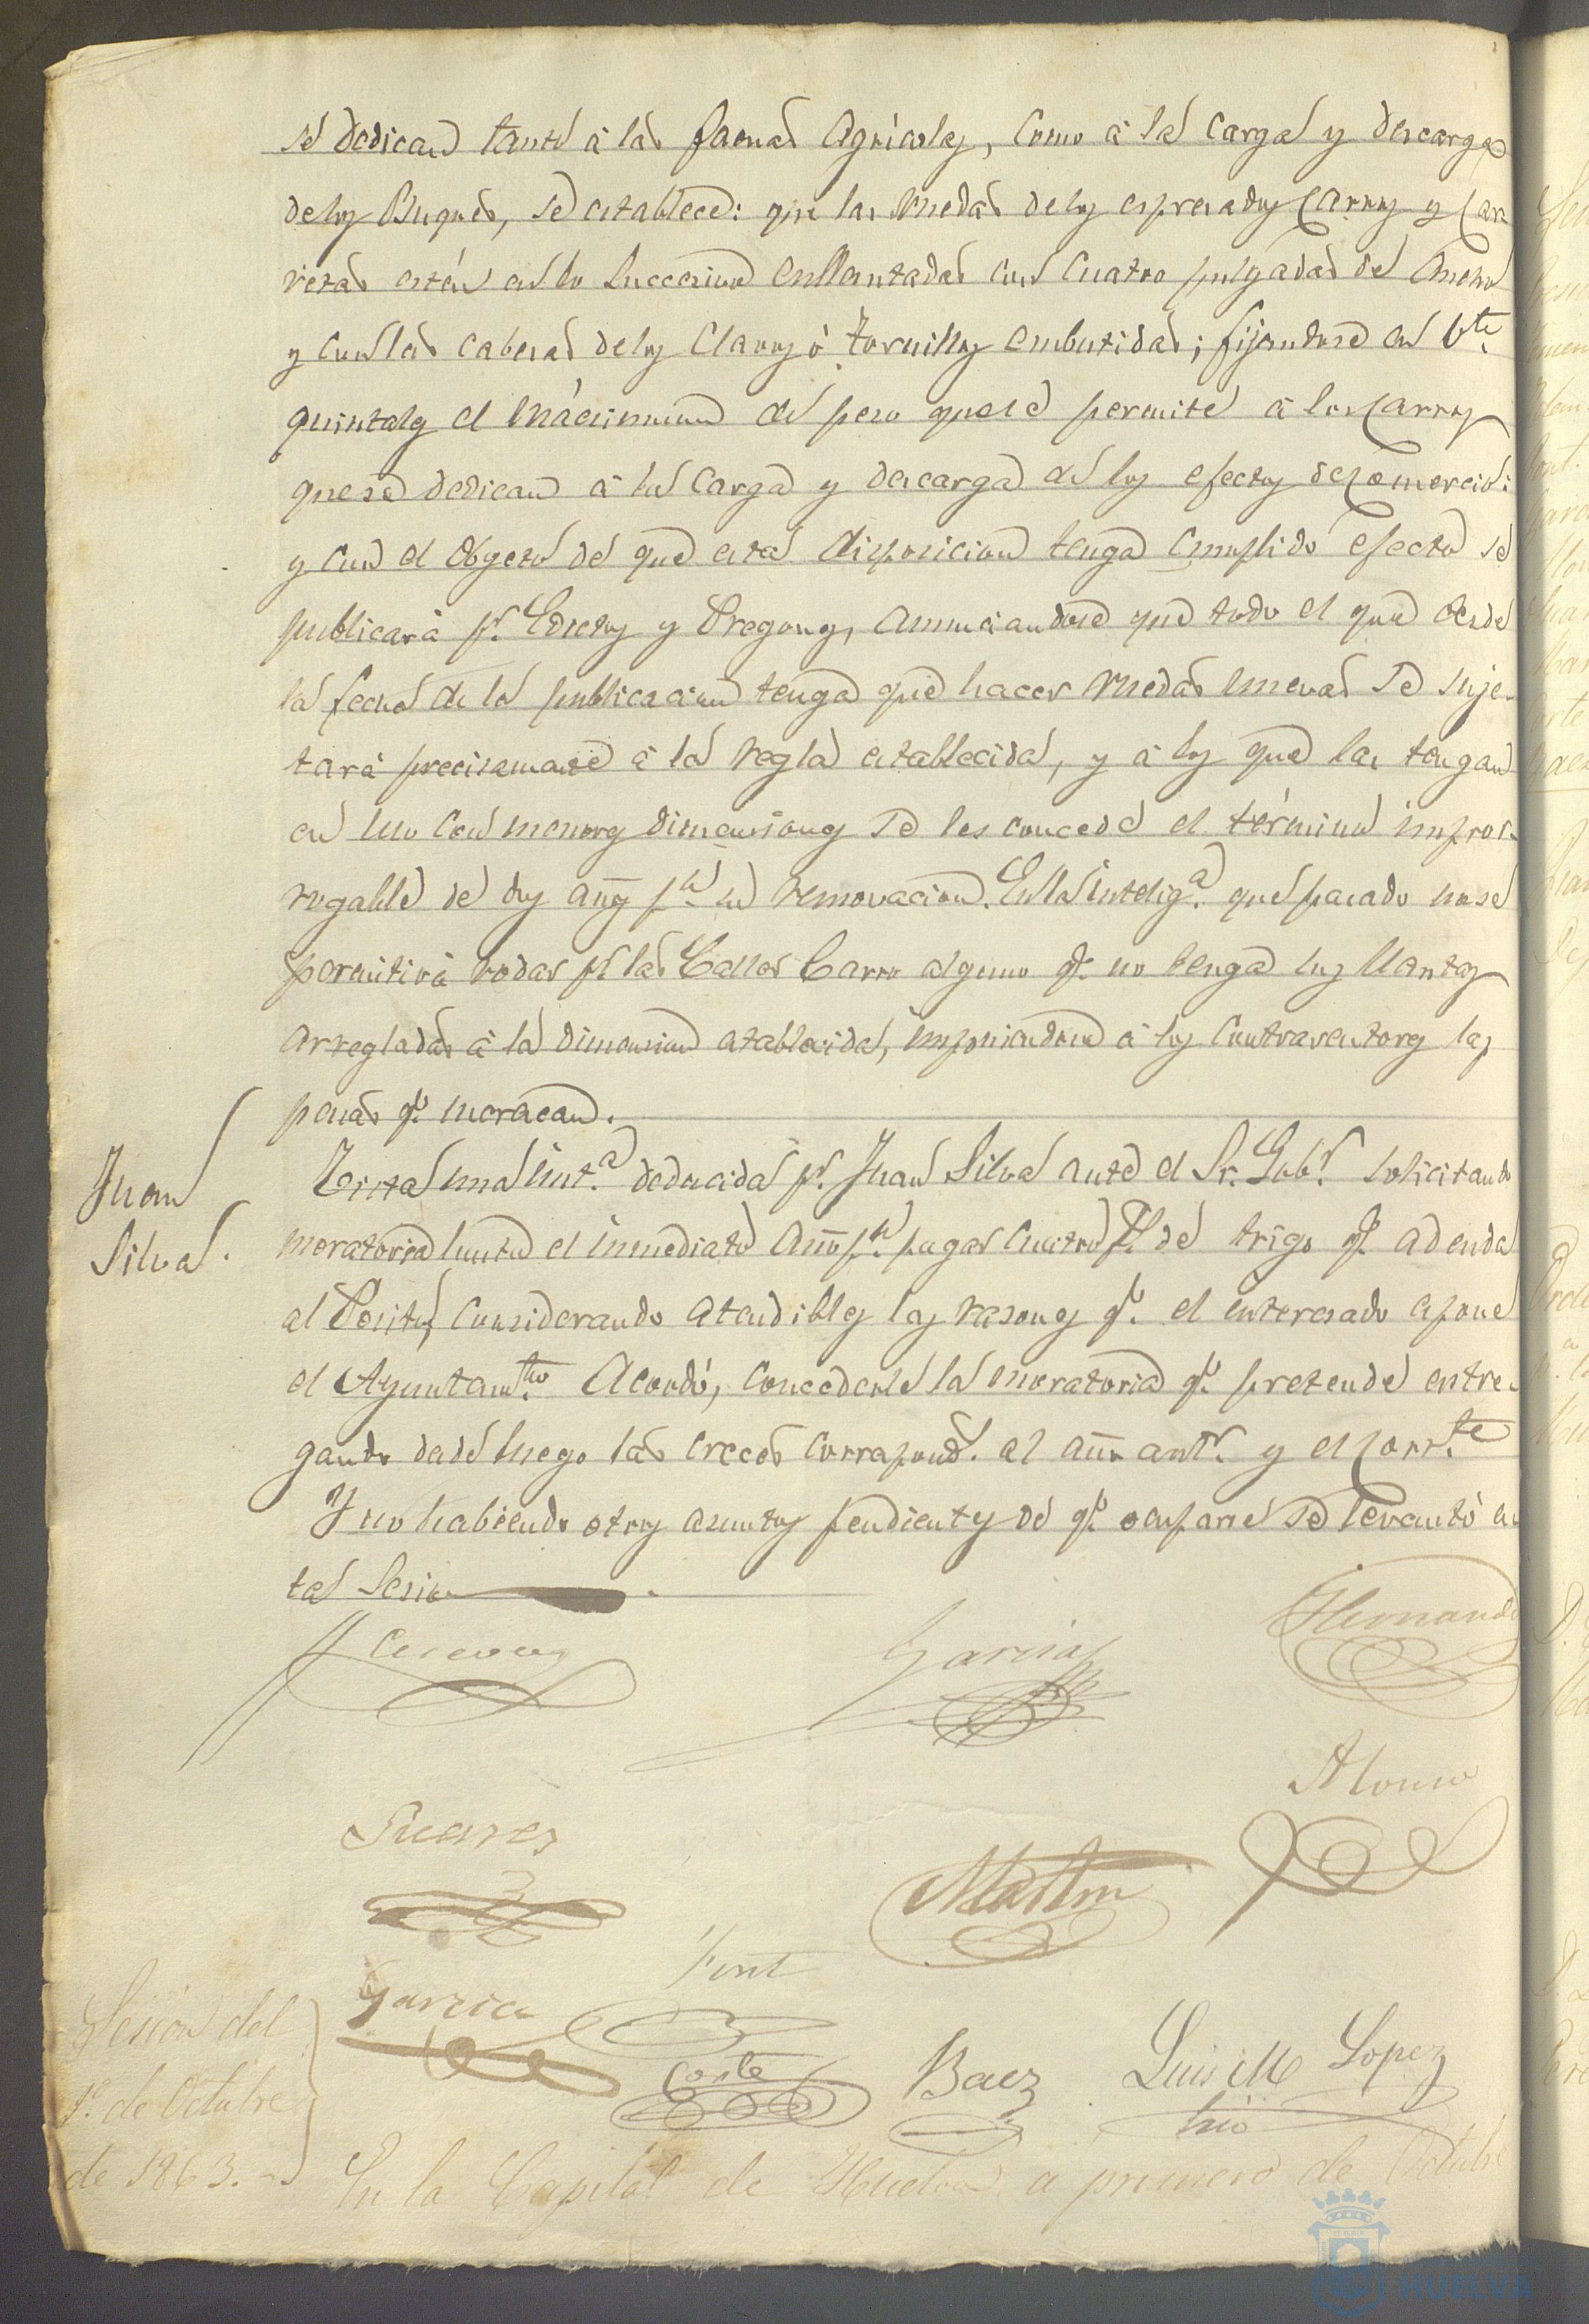 se dedican tanto á las faenas Agricolas, como á la carga y descarga
de los Buques, se establece: que las ruedas de los espresados Carros y Car-
retas estén en lo succesivo enllantadas con cuatro pulgadas de ancho
y con las cabesas de los Clavos ó Tornillos embutidas; fijandose en vte.
quintales el macsimum de peso que se permite á los Carros
que se dedican á la carga y descarga de los efectos de Comercio:
y con el Obgeto de que esta disposicion tenga cumplido efecto se
publicará pr. Edictos y Pregones, anunciandose que todo el que desde
la fecha de la publicacion tenga que hacer ruedas nuevas se suje-
tará precisamente á la regla establecida, y á los que las tengan
en uso con menores dimensiones se les concede el término impror-
rogable de dos años pa. su renovacion. En la inteliga. que pasado no se
permitirá rodar pr. las Calles Carro alguno qe. no tenga las llantas
arregladas á la dimension establecida, imponiendose á los contraventores las
penas qe. merescan.
Juan
Silva.
Vista una inta. deducida pr. Juan Silva ante el Sr. Gobr. solicitando
moratoria hasta el inmediato año pa. pagar cuatro fs. de trigo qe. adeuda
al Posito, considerando atendibles las rasones qe. el interesado espone
el Ayuntamto. Acordó, concederle la moratoria qe. pretende entre-
gando desde luego las creces correspond. al año antr. y el corrte.
Y no habiendo otros asuntos pendientes de qe. ocuparse se levantó es-
ta Sesion
Garcia
Hernandez
Suares
Alonso
Martin
Garcia
Font
Corte
Baez
Luis M Lopez
Srio
Sesion del
1º. de Octubre
de 1863.
En la Capital de Huelva a primero de Octubre
HUELVA